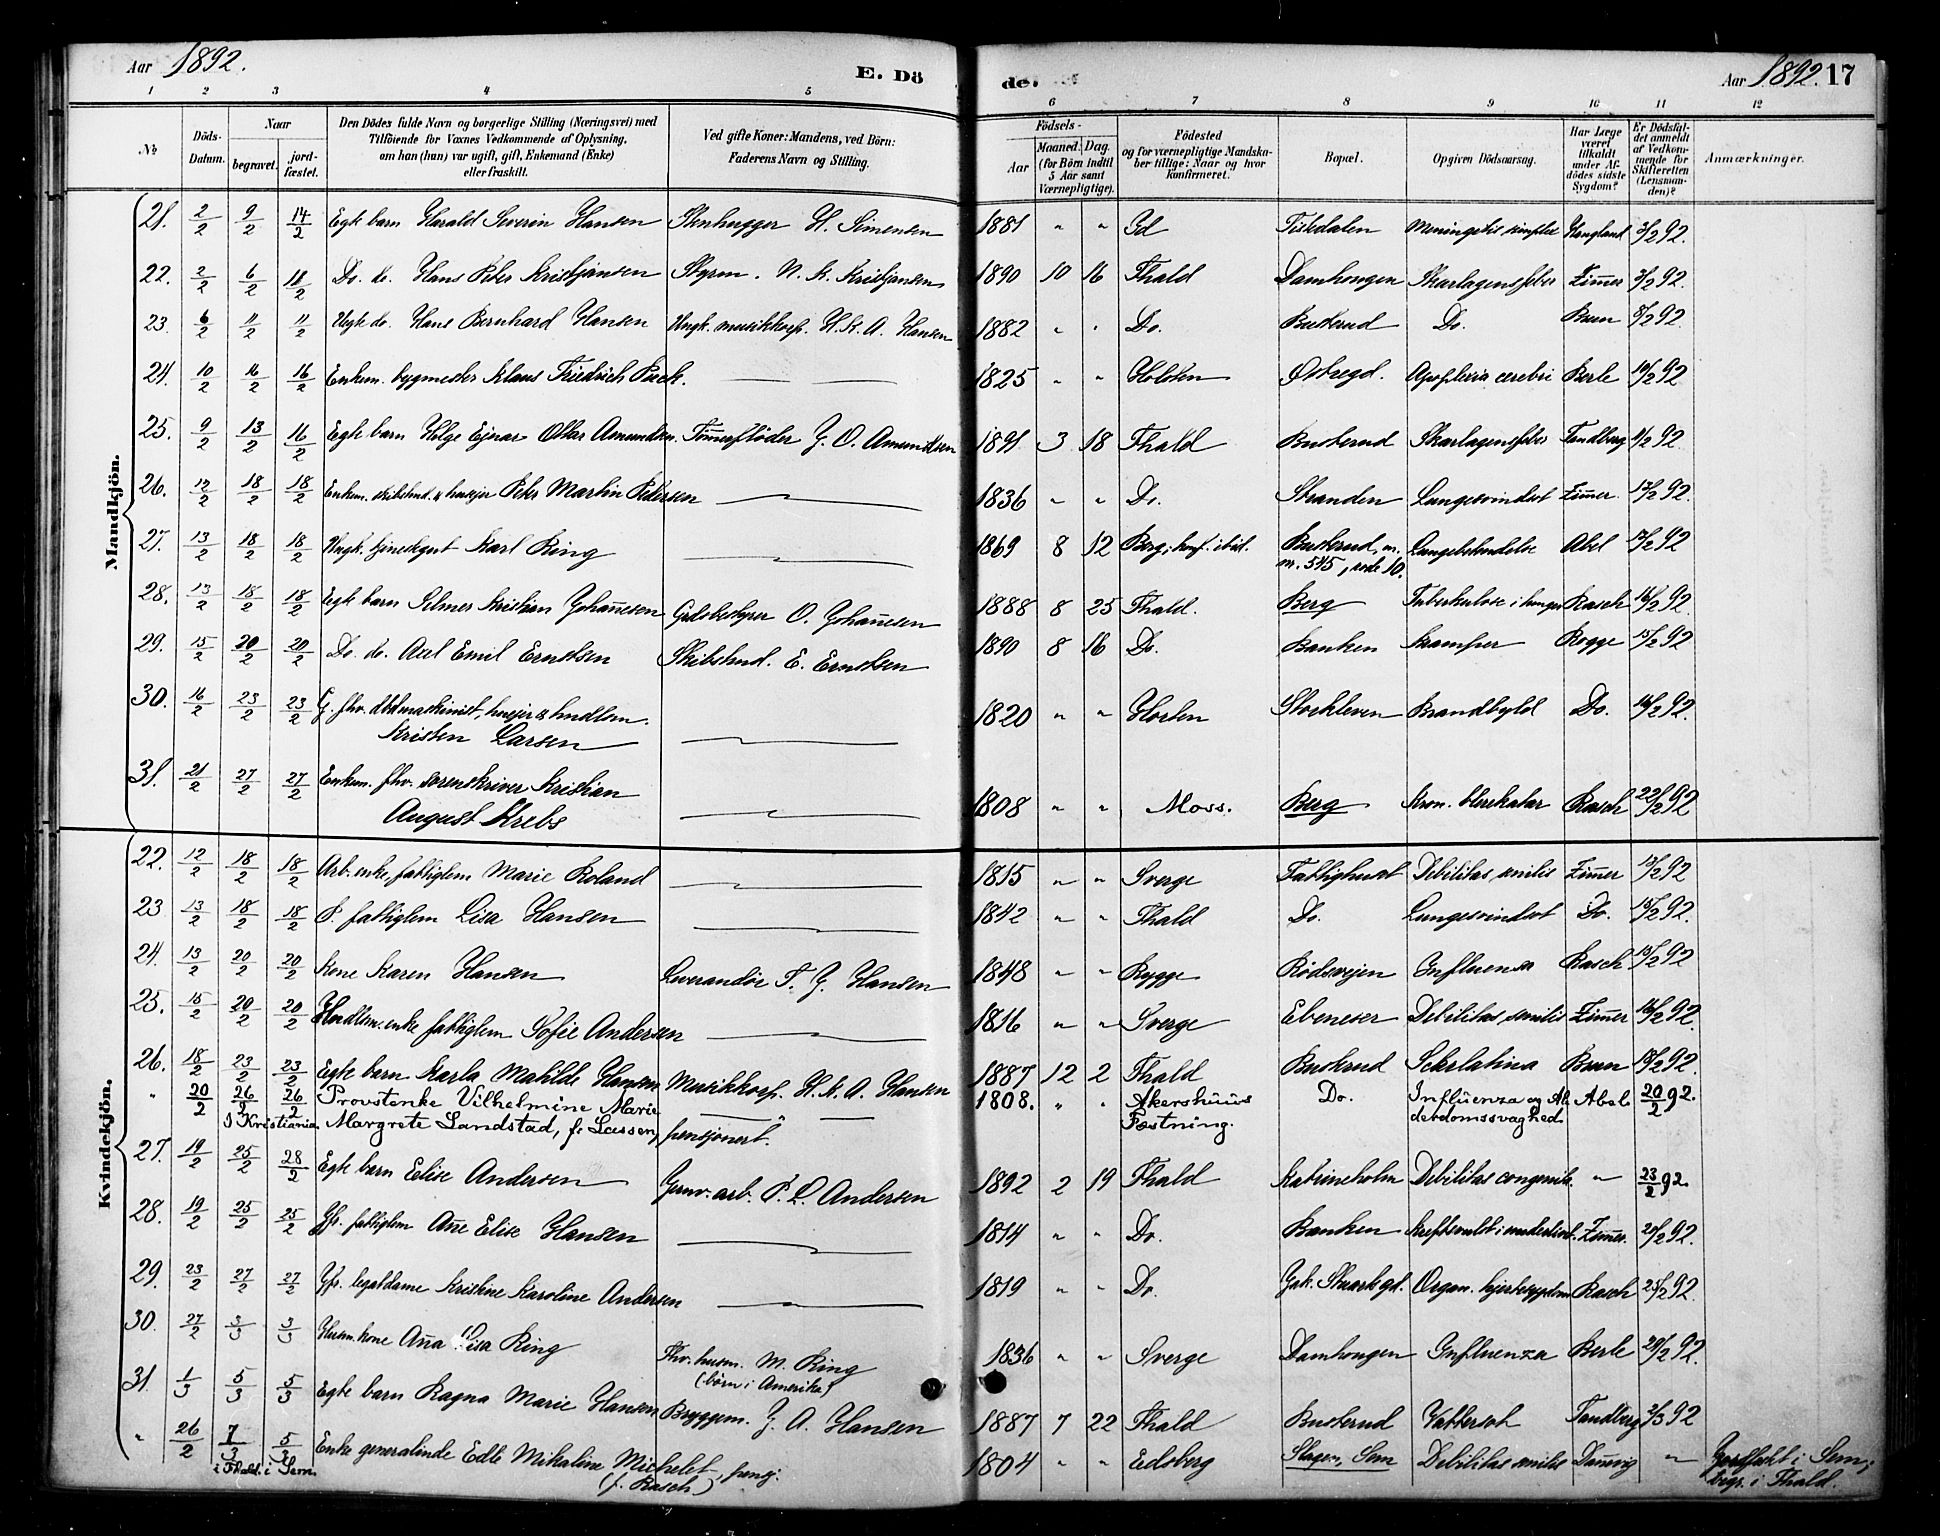 Aar 1892.
E. Dö
de.
Aar 1892. 17
1 2 3 4 5 6 7 8 9 10 11 12
No
Döds-
Datum.
Naar
begravet.
jord-
fæstet.
Den Dödes fulde Navn og borgerlige Stilling (Næringsvei) med
Tilföiende for Voxnes Vedkommende af Oplysning,
om han (hun) var ugift, gift, Enkemand (Enke)
eller fraskilt.
Ved gifte Koner: Mandens, ved Börn:
Faderens Navn og Stilling.
Födsels-
Aar
Maaned. Dag.
(for Börn indtil
5 Aar samt
Værnepligtige).
Födested
og for værnepligtige Mandska-
ber tillige: Naar og hvor
konfirmeret.
Bopæl.
Opgiven Dödsaarsag.
Har Læge
været
tilkaldt
under Af-
dödes sidste
Sygdom?
Er Dödsfal-
det anmeldt
af Vedkom-
mende for
Skifteretten
(Lensman-
den)?
Anmærkninger.
Mandkjön.
21. 2/2 9/2 14/2 Egte barn Harald Severin Hansen Stenhugger H. Simensen 1881 " " Id Tistedalen Meningitis simplex Hangland 3/2 92.
22. 2/2 6/2 18/2 Do. do. Hans Peter Kristjansen Styrm. N. K. Kristjansen 1890 10 16 Fhald Damhougen Skarlagensfeber Zimer 3/2 92.
23. 6/2 11/2 11/2 Uegte do. Hans Bernhard Hansen Ungk. musikkorp. H. K. A. Hansen 1882 " " Do. Buskerud Do. Bruun 8/2 92.
24. 10/2 16/2 16/2 Enkem. bygmester Klaus Friedrich Puck. 1825 " " Holsten Osteregd. Apoplexia cerebri Berle 10/2 92
25. 9/2 13/2 16/2 Egte barn Helge Ejnar Ottar Amundsen. Tømerfløder J. O. Amundsen 1891 3 18 Fhald Buskerud Skarlagensfeber Tandberg 11/2 92
26. 12/2 18/2 18/2 Enkem. skibstmd. & husejer Peter Martin Petersen 1836 " " Do. Stranden Lungesvindsot Zimer. 13/2 92.
27. 13/2 18/2 18/2 Ungk. tjenestegut Karl Ring 1869 8 12 Berg; konf. ibid. Buskerud, m.
nr. 545, rode 10. Lungebetændelse Abel 17/2 92
28. 13/2 18/2 18/2 Egte barn Hilmer Kristian Johañesen Grdsbestyrer O. Johañesen 1888 8 25 Fhald. Berg Tuberkulose i lunger Rasch 16/2 92
29. 15/2 20/2 20/2 Do. do. Axel Emil Ernstsen Skibstmd. E. Ernstsen 1890 8 16 Do. Banken Kramper Rogge 15/2 92
30. 16/2 23/2 23/2 G. fhv. dbdmaskinist, husejer & hndlem.
Kristen Larsen 1820 " " Horten Storkleven Brandbyld Do. 16/2 92.
31. 21/2 27/2 27/2 Enkem. fhv. sorenskriver Kristian
August Krebs 1808 " " Moss. Berg Kron. blærekatar Rasch 22/2 92
Kvindekjön.
22. 12/2 18/2 18/2 Arb. enke, fattiglem Marie Roland 1815 " " Sverge Fattighuset Debilitas senilis Zimer 13/2 92
23 13/2 18/2 18/2 P. fattiglem Lisa Hansen 1842 " " Fhald Do. Lungesvindsot Do. 15/2 92.
24. 13/2 20/2 20/2 Kone Karen Hansen Leverandør T. J. Hansen 1848 " " Rygge Rødsvejen Influensa Rasch 15/2 92
25. 15/2 20/2 20/2 Hndlem. enke fattiglem Sofie Andersen 1816 " " Sverge Ebeneser Debilitas senilis Zimer 16/2 92.
26. 18/2 23/2 23/2 Egte barn Karla Mathilde Hansen Musikkorp. H. K. A. Hansen 1887 12 2 Fhald Buskerud Skarlatina Bruun 18/2 92.
" 20/2 26/2 26/2 Provstenke Vilhelmine Marie
I Kristiania. Margrete Landstad, f. Lassen, pensjonert. 1808. " " Akershuus
Fæstning. Do. Influenza og Al-
derdomssvaghed. Abel 20/2 92.
27. 19/2 25/2 28/2 Egte barn Elise Andersen Jernv. arb. P. L. Andersen 1892 2 19 Fhald Katrineholm Debilitas congenita " 23/2 92.
28. 19/2 25/2 25/2 Jfr. fattiglem Añe Elise Hansen 1814 " " Do. Banken Zimer. 20/2 92.
29. 23/2 27/2 27/2 Jfr. legatdame Kristine Karoline Andersen 1819 " " Do. Jak. Stuarts gd. Organ. hjertesygdom Rasch 25/2 92.
30. 27/2 3/3 3/3 Husm. kone Aña Lisa Ring Fhv. husm. M. Ring
(børn i Amerika) 1836 " " Sverge Damhougen Influenza Berle 29/2 92.
31. 1/3 5/3 5/3 Egte barn Ragna Marie Hansen Bryggem. J. A. Hansen 1887 7 22 Fhald Buskerud Vattersot Tandberg 2/3 92
" 26/2 7/3 5/3 Enke generalinde Edle Mikaline Michelet, pens.
i Fhald. i Sem. (f. Rasch) 1804 " " Eidsberg Slagen, Sem Debilitas senilis Danevig " Jordfestet i Sem;
begr. i Fhald.